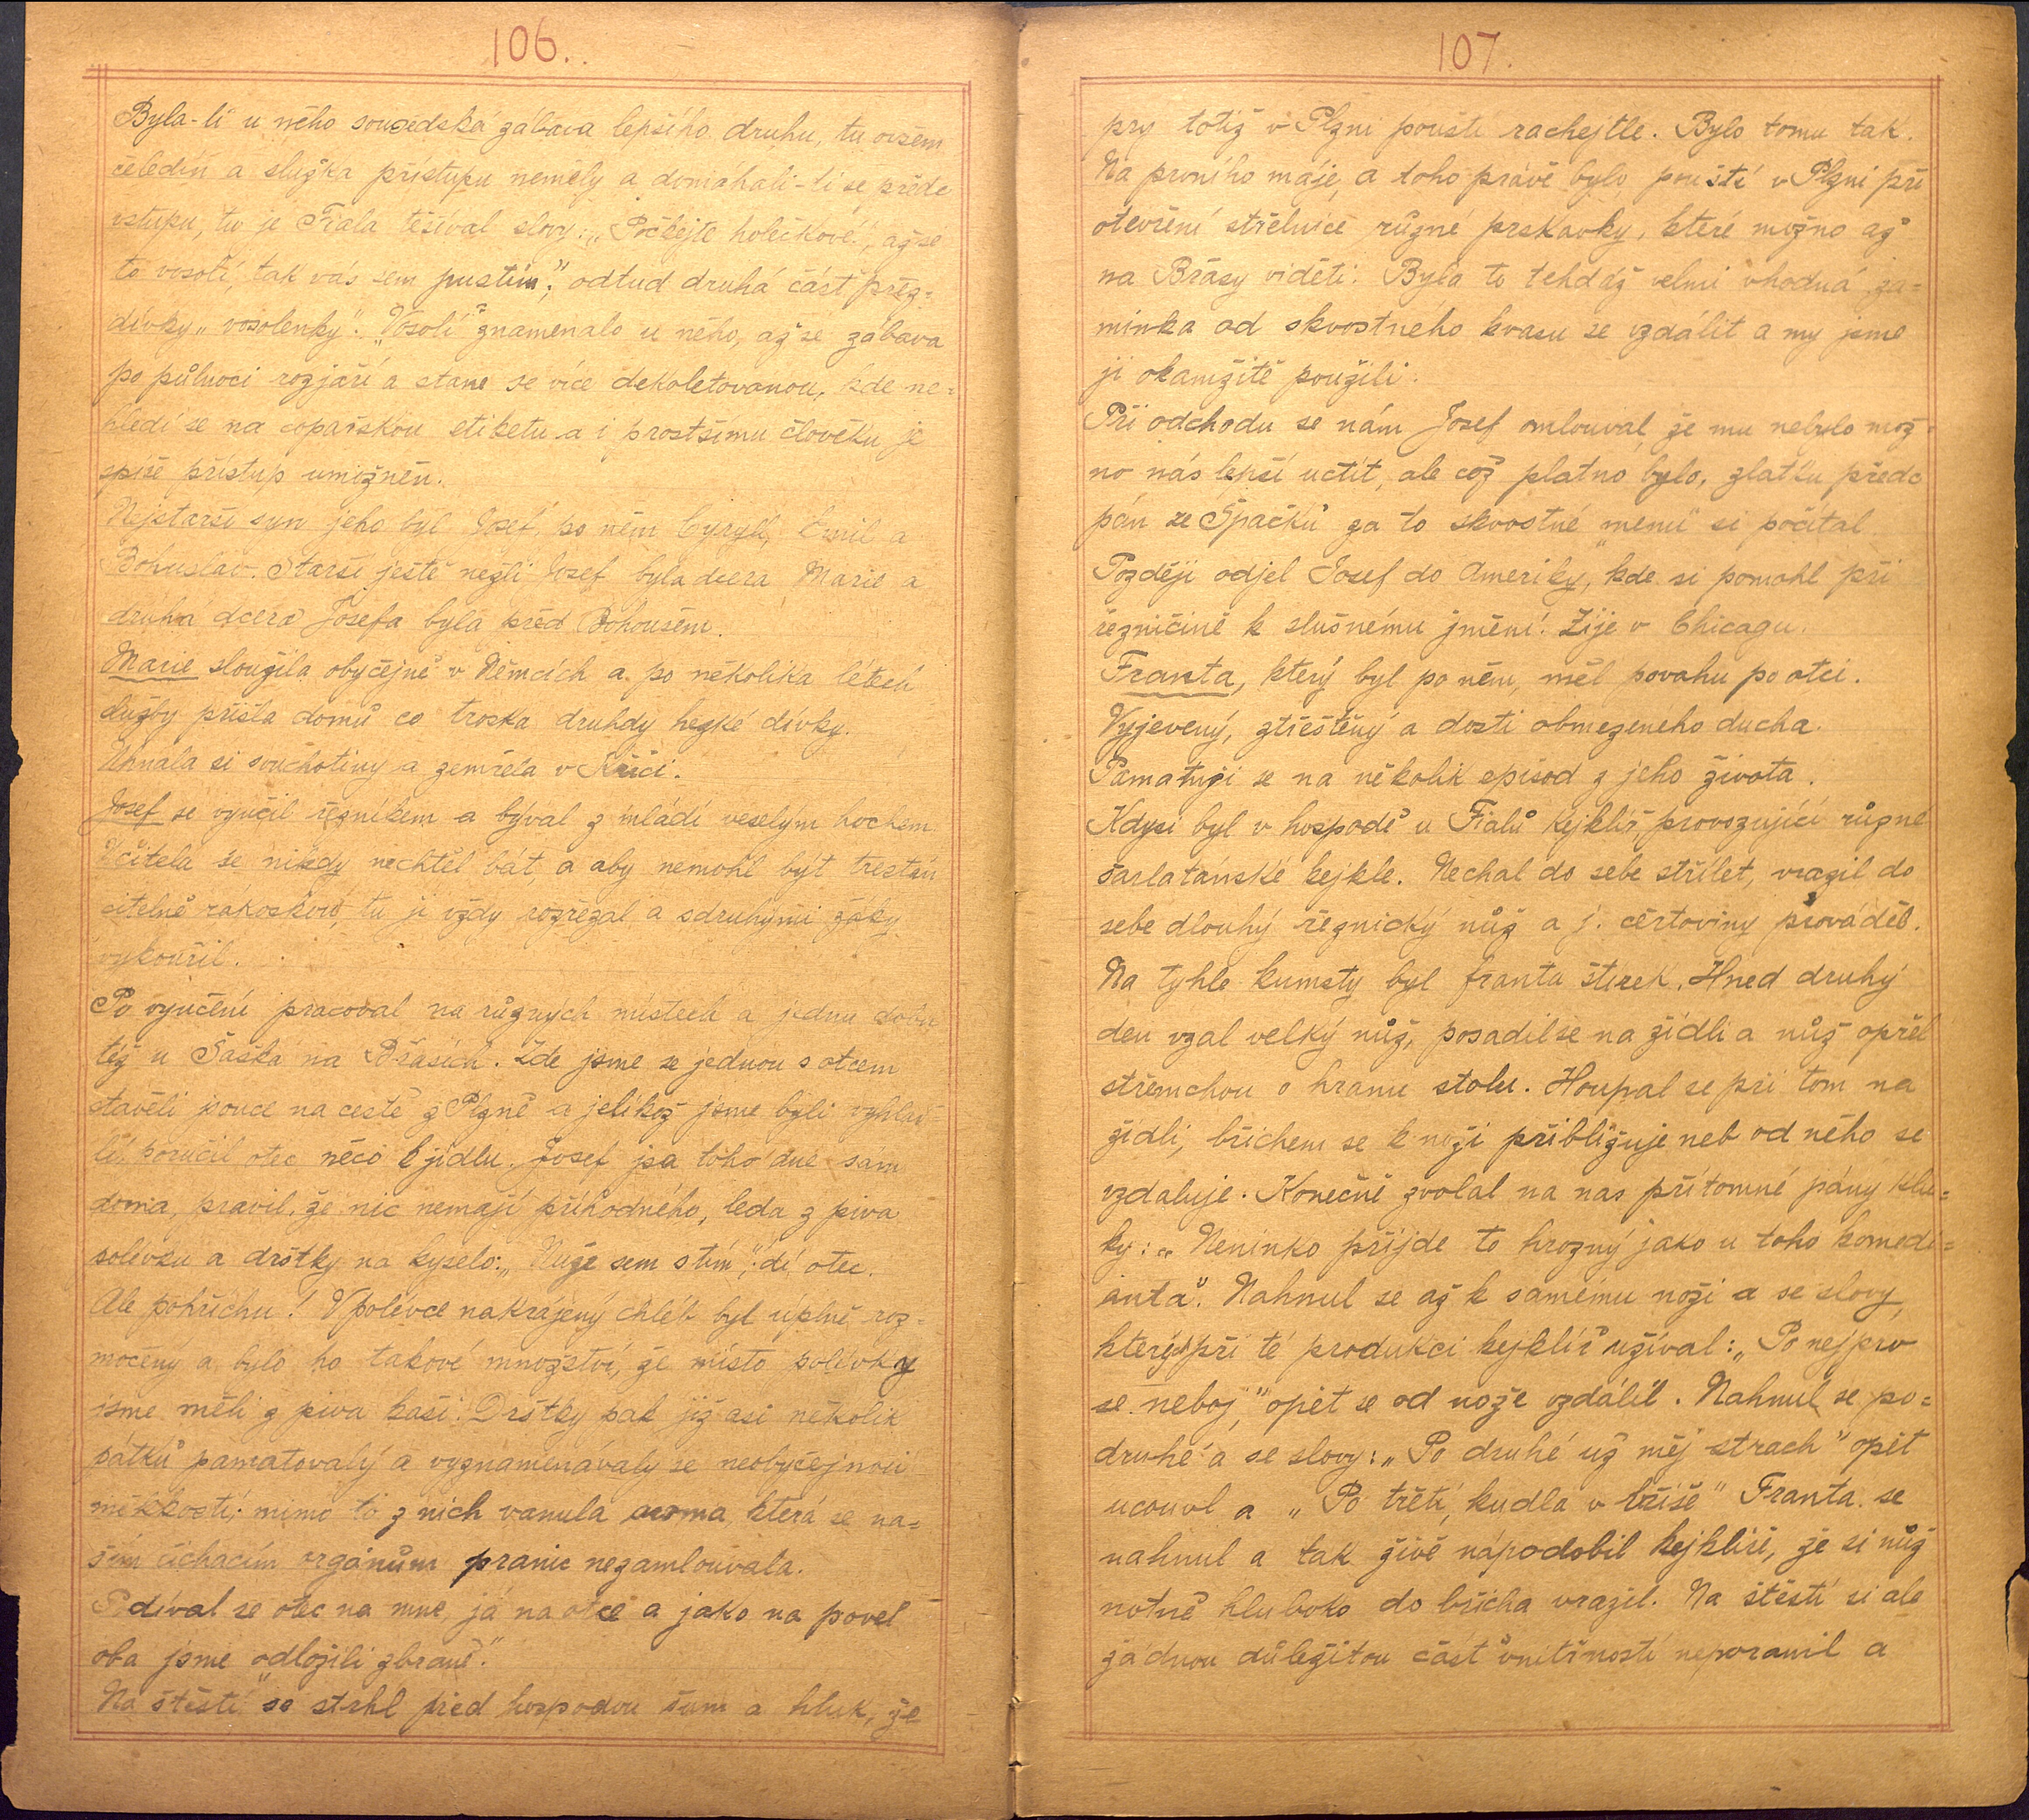 106.
Byla-li u něho sousedská zábava lepšího druhu, tu ovšem
čeledín a služka přístupu neměly a domáhali-li se přede
vstupu, tu je Fiala těšíval slovy: „Počkejte holečkové!, až se
to vosolí, tak vás sem pustím", odtud druhá část přez=
dívky „vosolenky". „Vosolí" znamenalo u něho, až se zábava
po půlnoci rozjaří a stane se více dekoletovanou, kde ne=
hledí se na copařskou etiketu a i prostšímu člověku je
spíše přístup umižněn.
Nejstarší syn jeho byl Josef, po něm Cyryll, Emil a
Bohuslav. Starší ještě nežli Josef byla dcera Marie a
druhá dcera Josefa byla před Bohoušem.
Marie sloužila obyčejně v Němcích a po několika létech
služby přišla domů co troska druhdy hezké dívky.
Uhnala si souchotiny a zemřela v Krči.
Josef se vyučil řezníkem a býval z mládí veselým hochem.
Učitela se nikdy nechtěl bát, a aby nemohl být trestán
citelně rákoskou, tu ji vždy rozřezal a sdruhými žáky
vykouřil.
Po vyučení pracoval na různých místech a jednu dobu
též u Šaška na Břasích. Zde jsme se jednou s otcem
stavěli jdouce na cestě z Plzně a jelikož jsme byli vyhlad
lí, poručil otec něco k jídlu. Josef jsa toho dne sám
doma, pravil, že nic nemají příhodného, leda z piva
polévku a drštky na kyselo: „Nuže sem s tím", dí otec.
Ale pohříchu! V polévce nakrájený chléb byl uplně roz=
močený a bylo ho takové množství, že místo polévky
jsme měli z piva kaši. Drštky pak již asi několik
pátků pamatovaly a vyznamenávaly se neobyčejnou
měkkostí; mimo to z nich vanula aroma, která se na=
šim čichacím orgánům pranic nezamlouvala.
Podíval se otec na mne, já na otce a jako na povel
oba jsme „odložili zbraně".
Na štěstí se strhl před hospodou šum a hluk, že
107.
prý totiž v Plzni pouští rachejtle. Bylo tomu tak.
Na prvního máje, a toho právě bylo pouští v Plzni při
otevření střelnice různé prskavky, které možno až
na Břasy viděti. Byla to tehdáž velmi vhodná zá=
minka od skvostného kvasu se vzdálit a my jsme
ji okamžitě použili.
Při odchodu se nám Josef omlouval, že mu nebylo mož=
no nás lepší uctít, ale což platno bylo, zlatku přede
pán ze Špačků za to skvostné „menu" si počítal.
Později odjel Josef do Ameriky, kde si pomohl při
řezničině k slušnému jmění. Žije v Chicagu.
Franta, který byl po něm, měl povahu po otci.
Vyjevený, ztřeštěný a dosti obmezeného ducha.
Pamatuji se na několik episod z jeho života.
Kdysi byl v hospodě u Fialů kejklíř provozující různé
šarlatánské kejkle. Nechal do sebe střílet, vrazil do
sebe dlouhý řeznický nůž a j. čertoviny prováděl.
Na tyhle kumsty byl franta štírek. Hned druhý
den vzal velký nůž, posadil se na židli a nůž opřel
střemchou o hranu stolu. Houpal se při tom na
židli, břichem se k noži přibližuje neb od něho se
vzdaluje. Konečně zvolal na nas přítomné pány klu=
ky: „Neninko přijde to hrozný jako u toho komedi=
anta". Nahnul se až k samému noži a se slovy,
který při té produkci kejklíř užíval: „Po nejprv
se neboj," opět se od nože vzdálil. Nahnul se po=
druhé a se slovy: „Po druhé už měj strach" opět
ucouvl a „Po třetí, kudla v břiše" Franta se
nahnul a tak živě nápodobil kejklíře, že si nůž
notně hluboko do břicha vrazil. Na štěstí si ale
žádnou důležitou část vnitřností neporanil a